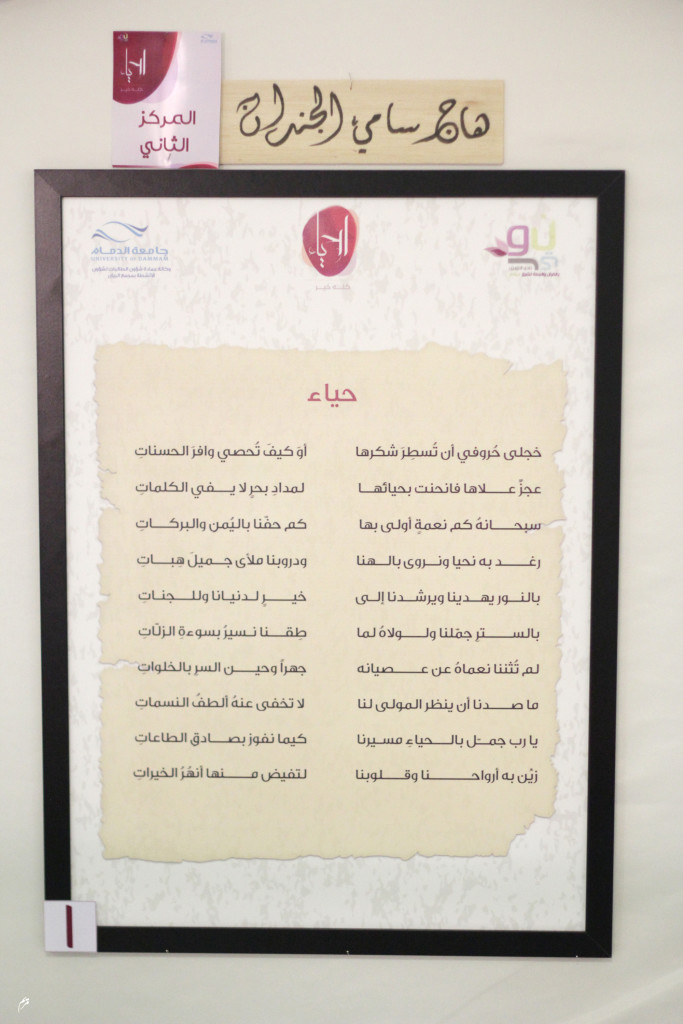 إحياء
كلنا خير
المركز
الثاني
هاجر سامي الجندان
جامعة الدمام
UNIVERSITY OF DAMMAM
إحياء
حياء
خجلى حُروفي أن تُسطِرَ شكرها أوَ كيفَ تُحصي وافرَ الحسناتِ
عجزٌ عـلاها فانحنت بحيائها لمدادِ بحرٍ لا يـفـي الكلماتِ
سبحـانهُ كم نعمةٍ أولى بها كم حفّنا باليُمن والبركـاتِ
رغـد به نحيا ونروى بالـهنا ودروبنا ملأى جـميلَ هِبـاتِ
بالنور يهـدينا ويرشدنا إلى خيـرٍ لـدنيانا وللـجناتِ
بالستـرِ جمّلنا ولـولاهُ لما طِقـنا نسيرُ بسوءةِ الزلّاتِ
لم تُثننا نعماهُ عن عـصيانه جهراً وحيـن السرِ بالخلواتِ
ما صـدنا أن ينظر المولى لنا لا تخفى عنهُ ألطفُ النسماتِ
يا رب جمـّل بالـحياءِ مسيرنا كيما نفوز بصـادق الطاعاتِ
زيّن به أرواحـنا وقـلوبنا لتفيض مـنها أنهُرُ الخيراتِ
١